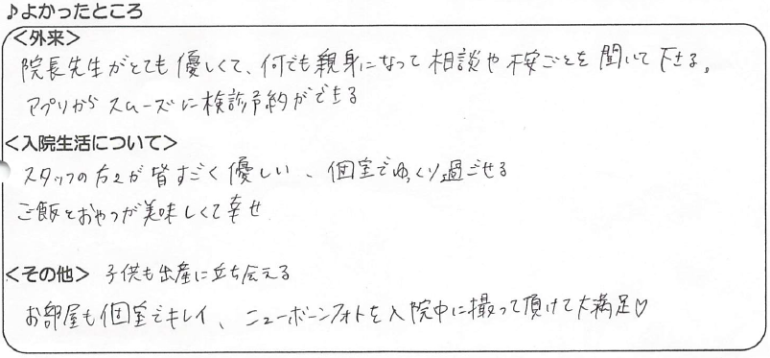 ♪よかったところ
<外来>
院長先生がとても優しくて、何でも親身になって相談や不安ごとを聞いて下さる。
アプリからスムーズに検診予約ができる
<入院生活について>
スタッフの方々が皆すごく優しい、個室でゆっくり過ごせる
ご飯とおやつが美味しくて幸せ
<その他> 子供も出産に立ち会える
お部屋も個室でキレイ、ニューボーンフォトを入院中に撮って頂けて大満足♡